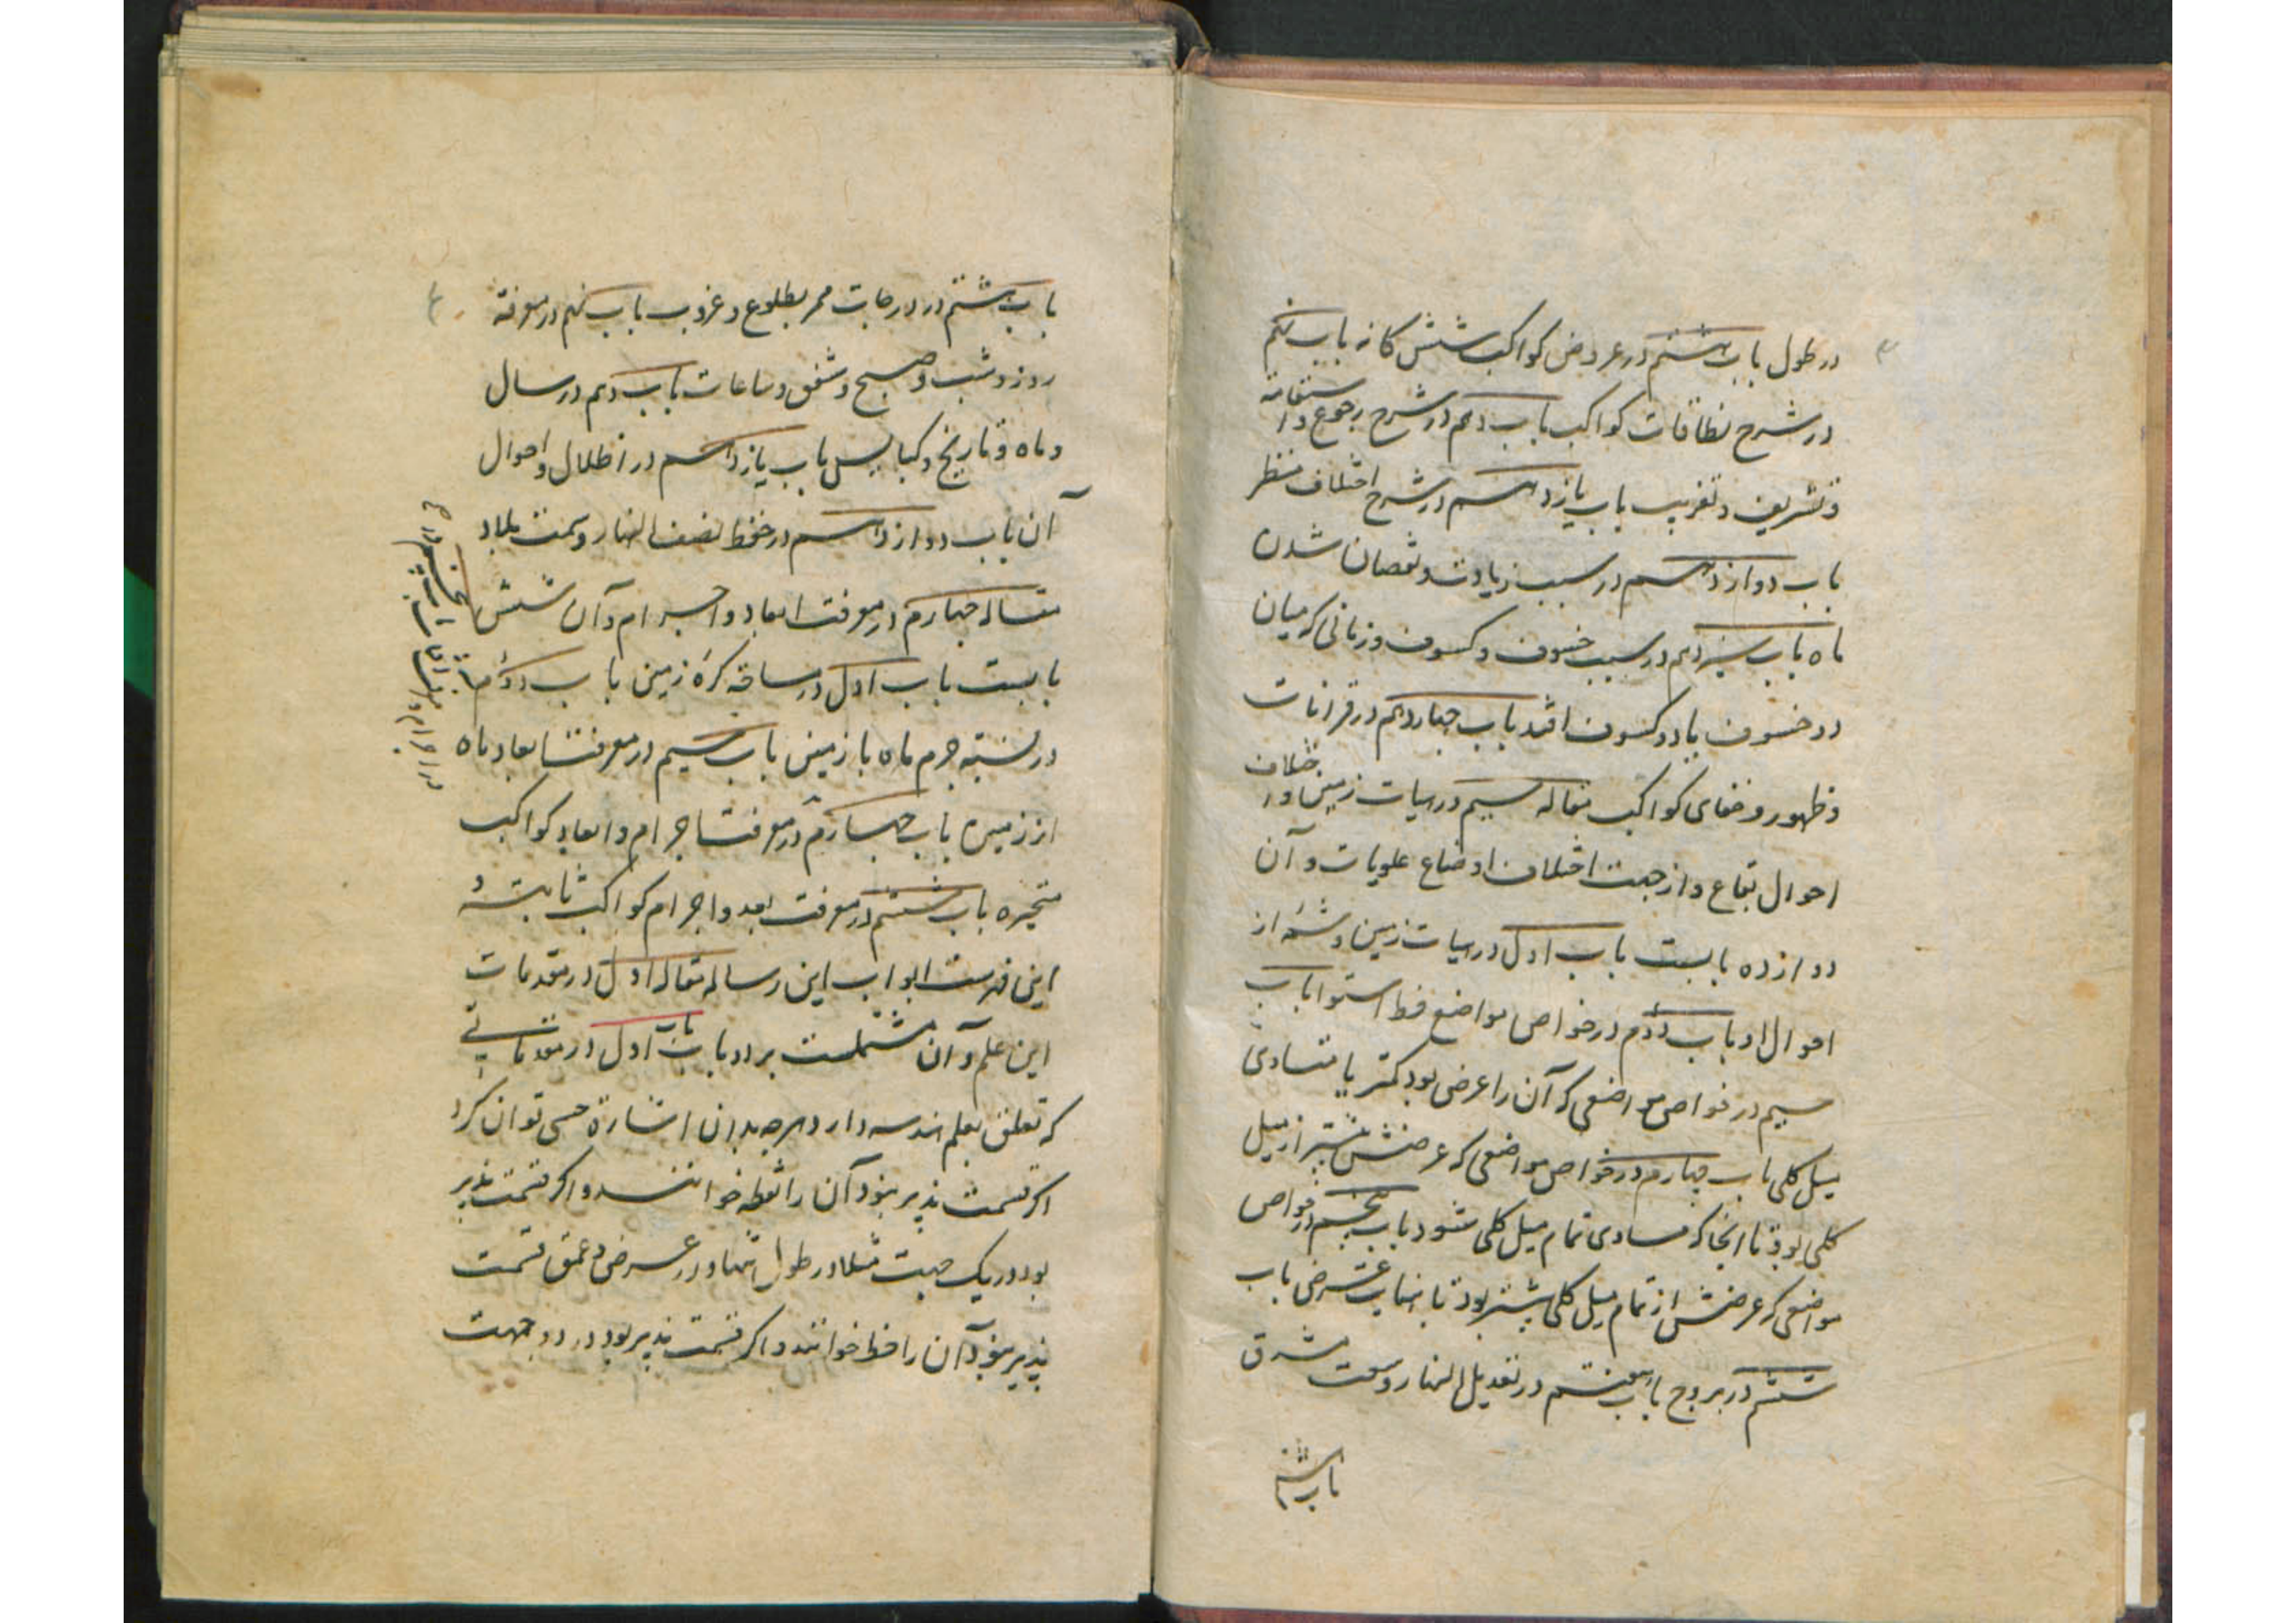 در طول باب هشتم در عروض کواکب شش کانه باب نهم
در شرح نطاقات کواکب باب دهم در شرح رجوع و استقامة
و تشریق و تغریب باب یازدهم در شرح اختلاف منظر
باب دوازدهم در سبب زیادت و نقصان شدن
ماه باب سیزدهم در سبب خسوف و کسوف و زمانی که میان
دو خسوف یا دو کسوف افتد باب چهاردهم در قرانات
و ظهور و خفای کواکب مقاله سیم در هیات زمین و اختلاف
احوال بقاع و از جهت اختلاف اوضاع علویات و آن
دوازده بابست باب اول در هیات زمین و شمه از
احوال او باب دوم در خواص مواضع خط استوا باب
سیم در خواص مواضعی که آن را عرضی بود کمتر یا متساوی
میل کلی باب چهارم در خواص مواضعی که عرضش بیشتر از میل
کلی بود تا آنجا که مساوی تمام میل کلی شود باب پنجم در خواص
مواضعی که عرضش از تمام میل کلی بیشتر بود تا بنهایت عرض باب
ششم در بروج باب هفتم در تعدیل النهار و سعت مشرق
باب هشتم
باب هشتم در درجات ممر بطلوع و غروب باب نهم در معرفة
روز و شب و صبح و شفق و ساعات باب دهم در سال
و ماه و تاریخ و کبایس باب یازدهم در اظلال و احوال
آن باب دوازدهم در خط نصف النهار و سمت بلاد
مقاله چهارم در معرفت ابعاد و اجرام و آن شش
بابست باب اول در مساحة کرهٔ زمین باب دوم
در نسبة جرم ماه با زمین باب سیم در معرفت ابعاد ماه
از زمین باب چهارم در معرفت اجرام و ابعاد کواکب
متحیره باب ششم در معرفت بعد و اجرام کواکب ثابته و
این فهرست ابواب این رساله مقاله اول در مقدمات
این علم و آن مشتملست بر دو باب باب اول در مقدماتی
که تعلق بعلم هندسه دارد هرچه بدان اشارة حسی توان کرد
اکر قسمت پذیر نبود آن را نقطه خوانند و اکر قسمت پذیر
بود در یک جهت مثلا در طول تنها و در عرض و عمق قسمت
پذیر نبود آن را خط خوانند و اکر قسمت پذیر بود در دو جهت
باب پنجم در